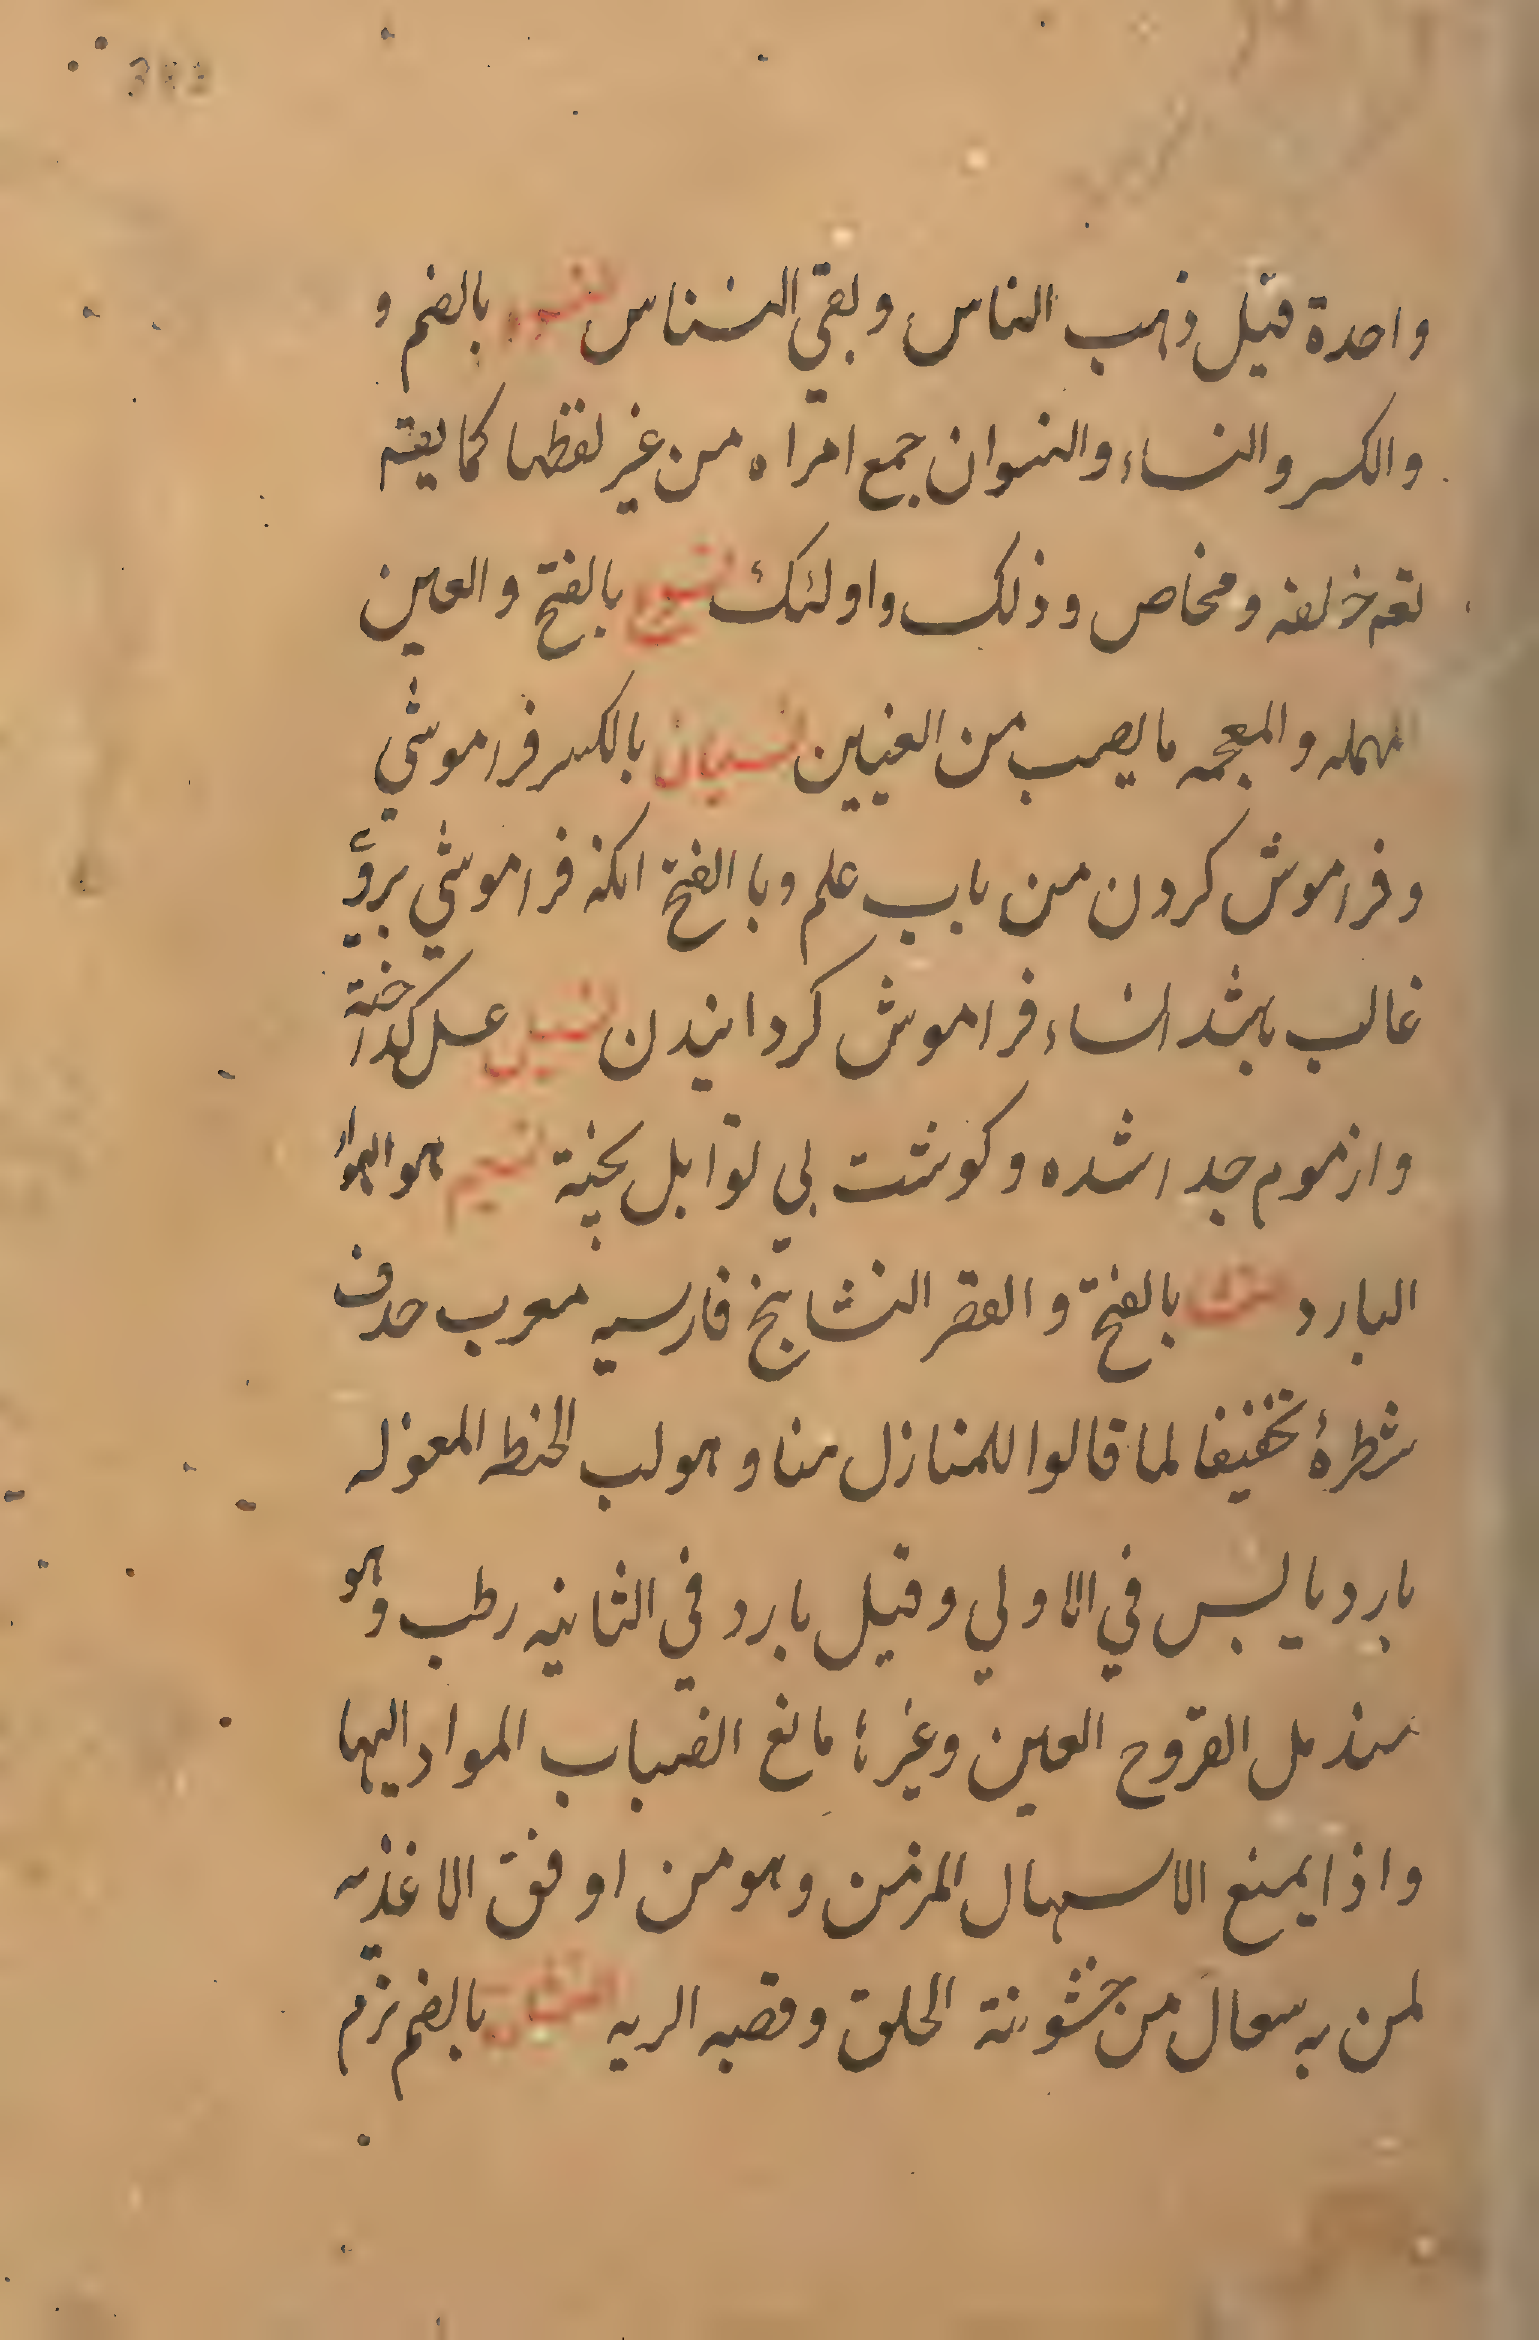 واحدة قيل ذهب الناس وبقي النسناس نسوه بالضم و
والكسر والنساء والنسوان جمع امراه من غير لفظها كما يقه
لقه خلفه ومخاض وذلك واولئك نسوع بالفتح والعين
المهمله والمعجمه ما يصب من العينين نسيان بالكسر فراموشي
وفراموش كردن من باب علم وبا الفتح انكه فراموشي برو
غالب باشد انساء فراموش كردانيدن نسيل عسل كداخته
وازموم جدا شده وكوشت بي توابل پخته نسيم هو الهوا
البارد نشا بالفتح والقصر النشاستج فارسيه معرب حذف
شطره تخفيفا لما قالوا للمنازل منا وهو لب الحنطه المعزله
بارد يابس في الاولي وقيل بارد في الثانيه رطب وهو
يندمل القروح العين وغيرها مانع انصباب المواد اليها
واذا يمنع الاسهال المزمن وهو من اوفق الاغذيه
لمن به سعال من خشونة الحلق وقصبه الريه بالضم نزم